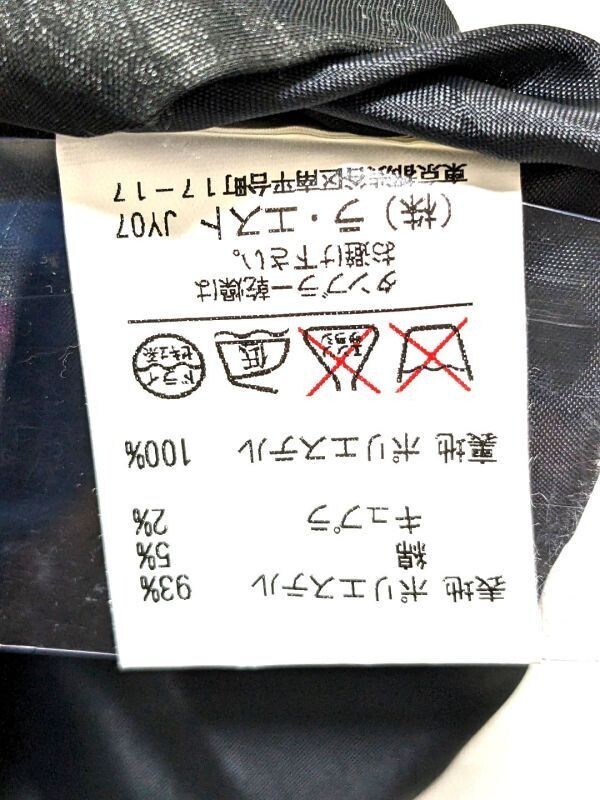 表地 ポリエステル 93%
綿 5%
キュプラ 2%
裏地 ポリエステル 100%
エンソ サラシ 低 ドライ セキユ系
タンブラー乾燥は
お避け下さい。
(株)ラ・エスト JY07
東京都渋谷区南平台町17-17